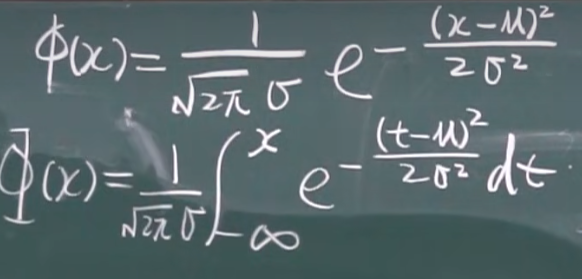 ϕ(x) = \frac{1}{\sqrt{2π} σ} e^{-\frac{(x-μ)^2}{2σ^2}}
Φ(x) = \frac{1}{\sqrt{2π} σ} \int_{-∞}^{x} e^{-\frac{(t-μ)^2}{2σ^2}} dt.